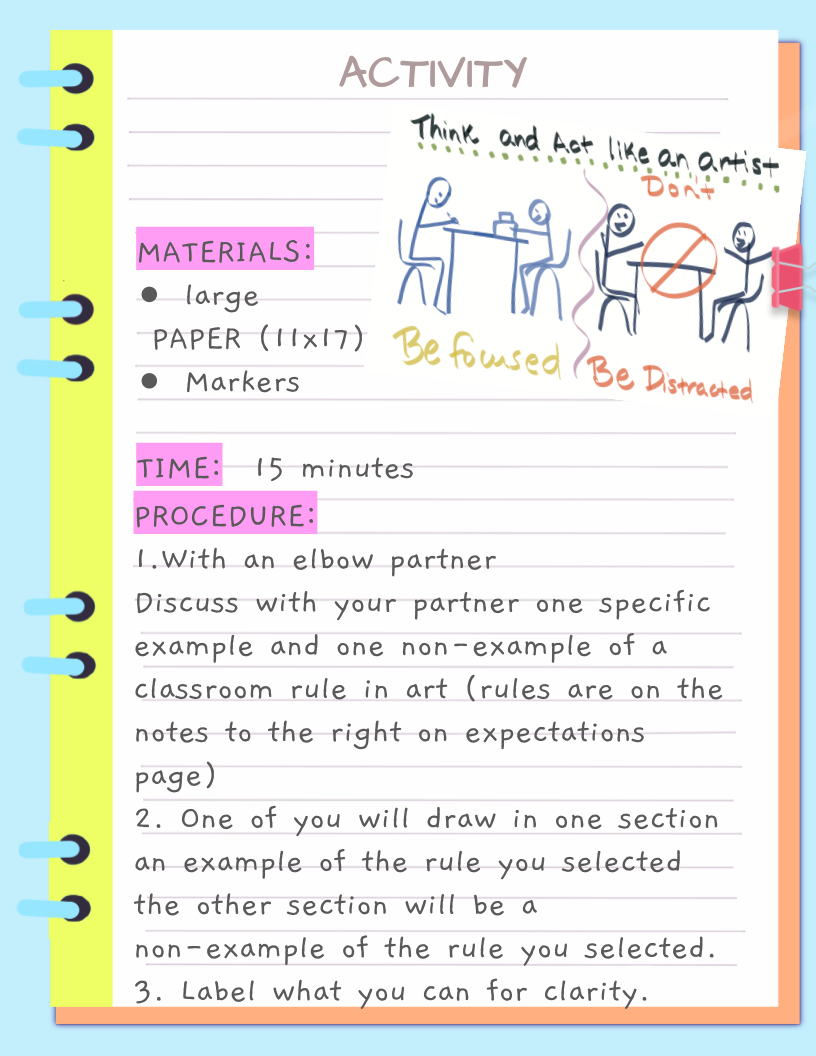 ACTIVITY
Think and Act like an artist
Don't
Be focused
Be Distracted
MATERIALS:
● large
PAPER (11x17)
● Markers
TIME: 15 minutes
PROCEDURE:
1.With an elbow partner
Discuss with your partner one specific
example and one non-example of a
classroom rule in art (rules are on the
notes to the right on expectations
page)
2. One of you will draw in one section
an example of the rule you selected
the other section will be a
non-example of the rule you selected.
3. Label what you can for clarity.